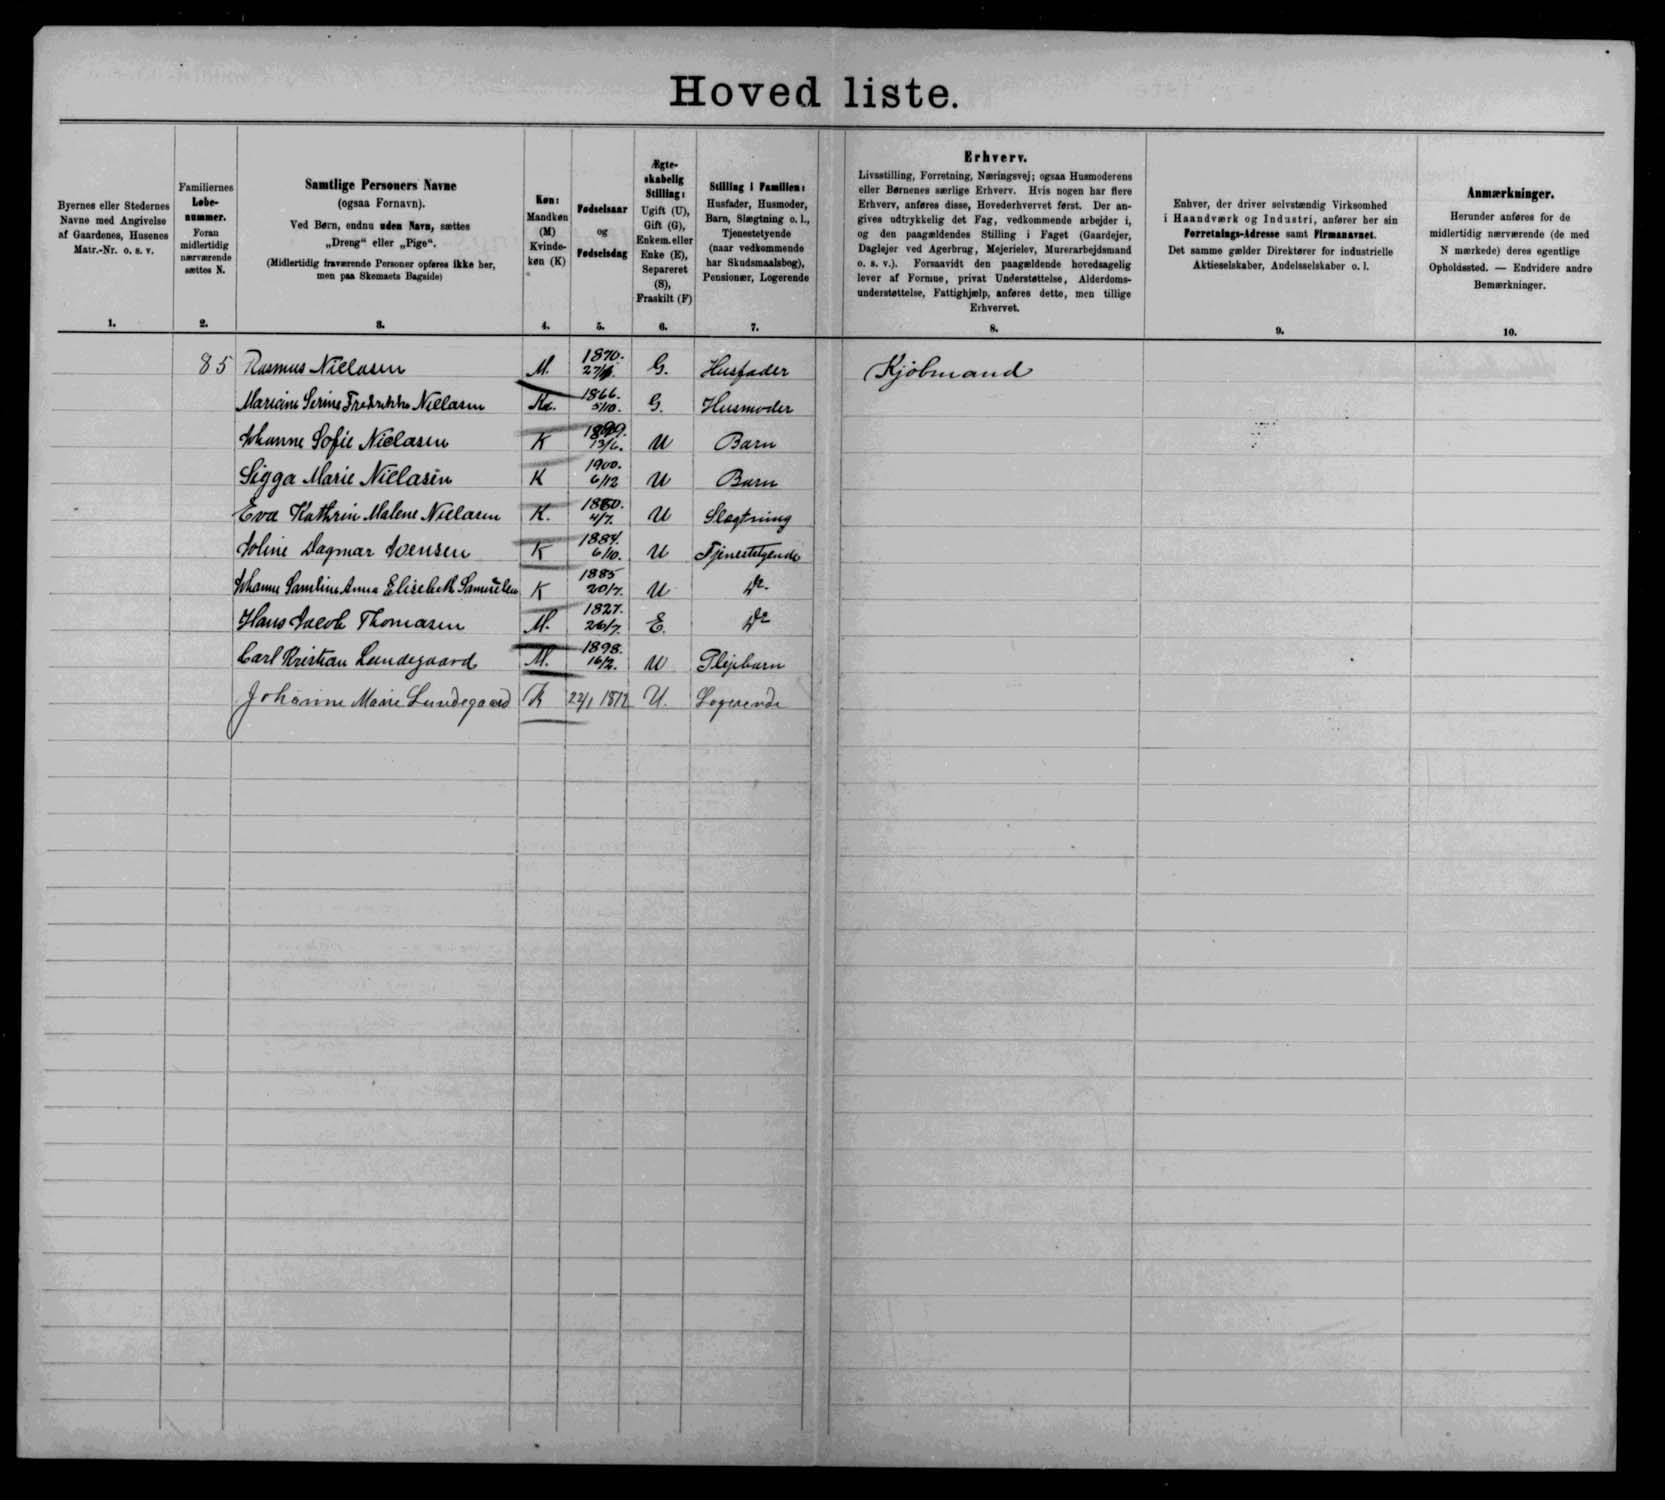 Hoved liste.
Byernes eller Stedernes
Navne med Angivelse
af Gaardenes, Husenes
Matr.-Nr. o. s. v.
1.
Familiernes
Løbe-
nummer.
Foran
midlertidig
nærværende
sættes N.
2.
Samtlige Personers Navne
(ogsaa Fornavn).
Ved Børn, endnu uden Navn, sættes
„Dreng“ eller „Pige“.
(Midlertidig fraværende Personer opføres ikke her,
men paa Skemaets Bagside)
3.
Køn:
Mandkøn
(M)
Kvinde-
køn (K)
4.
Fødselsaar
og
Fødselsdag
5.
Ægte-
skabelig
Stilling:
Ugift (U),
Gift (G),
Enkem. eller
Enke (E),
Separeret
(S),
Fraskilt (F)
6.
Stilling i Familien:
Husfader, Husmoder,
Barn, Slægtning o. l.,
Tjenestetyende
(naar vedkommende
har Skudsmaalsbog),
Pensionær, Logerende
7.
Erhverv.
Livsstilling, Forretning, Næringsvej; ogsaa Husmoderens
eller Børnenes særlige Erhverv. Hvis nogen har flere
Erhverv, anføres disse, Hovederhvervet først. Der an-
gives udtrykkelig det Fag, vedkommende arbejder i,
og den paagældendes Stilling i Faget (Gaardejer,
Daglejer ved Agerbrug, Mejerielev, Murerarbejdsmand
o. s. v.). Forsaavidt den paagældende hovedsagelig
lever af Formue, privat Understøttelse, Alderdoms-
understøttelse, Fattighjælp, anføres dette, men tillige
Erhvervet.
8.
Enhver, der driver selvstændig Virksomhed
i Haandværk og Industri, anfører her sin
Forretnings-Adresse samt Firmanavnet.
Det samme gælder Direktører for industrielle
Aktieselskaber, Andelsselskaber o. l.
9.
Anmærkninger.
Herunder anføres for de
midlertidig nærværende (de med
N mærkede) deres egentlige
Opholdssted. — Endvidere andre
Bemærkninger.
10.
85 Rasmus Nielasen M. 1870. G. Husfader Kjöbmand
Mariane Serine Fredrikke Nielasen 1866. 5/10. G. Husmoder
Johanne Sofie Nielasen K 13/6. U Barn
Sigga Marie Nielasen K 1900. 6/12 U Barn
Eva Kathrin Malene Nielasen K. 1880. 4/7. U Slægtning
Joline Dagmar Joensen K 1884. 6/10. U Tjenestetyende
Johanne Samline Anna Elisebeth Samuelsen K 1885 20/7. U Do
Hans Jacob Thomasen M. 1827. 26/7. E. Do
Carl Kristian Lundegaard M. 1898. 16/2. U Plejebarn
Johanne Marie Lundegaard K 22/1 1872 U. Logerende